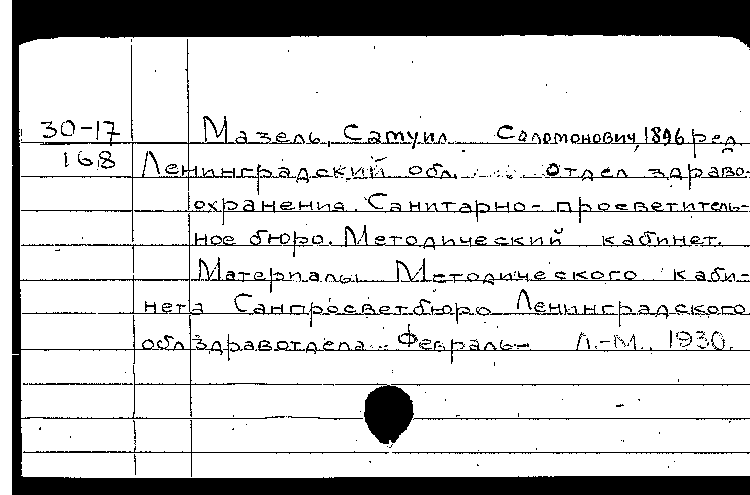 30-17 Мазель, Самуил Саломонович, 1896 ред.
168 Ленинградский обл. отдел здраво-
охранения. Санитарно-просветитель-
ное бюро. Методический кабинет.
Материалы Методического каби-
нета Санпросветбюро Ленинградского
облздравотдела. Февраль- Л.-М., 1930.